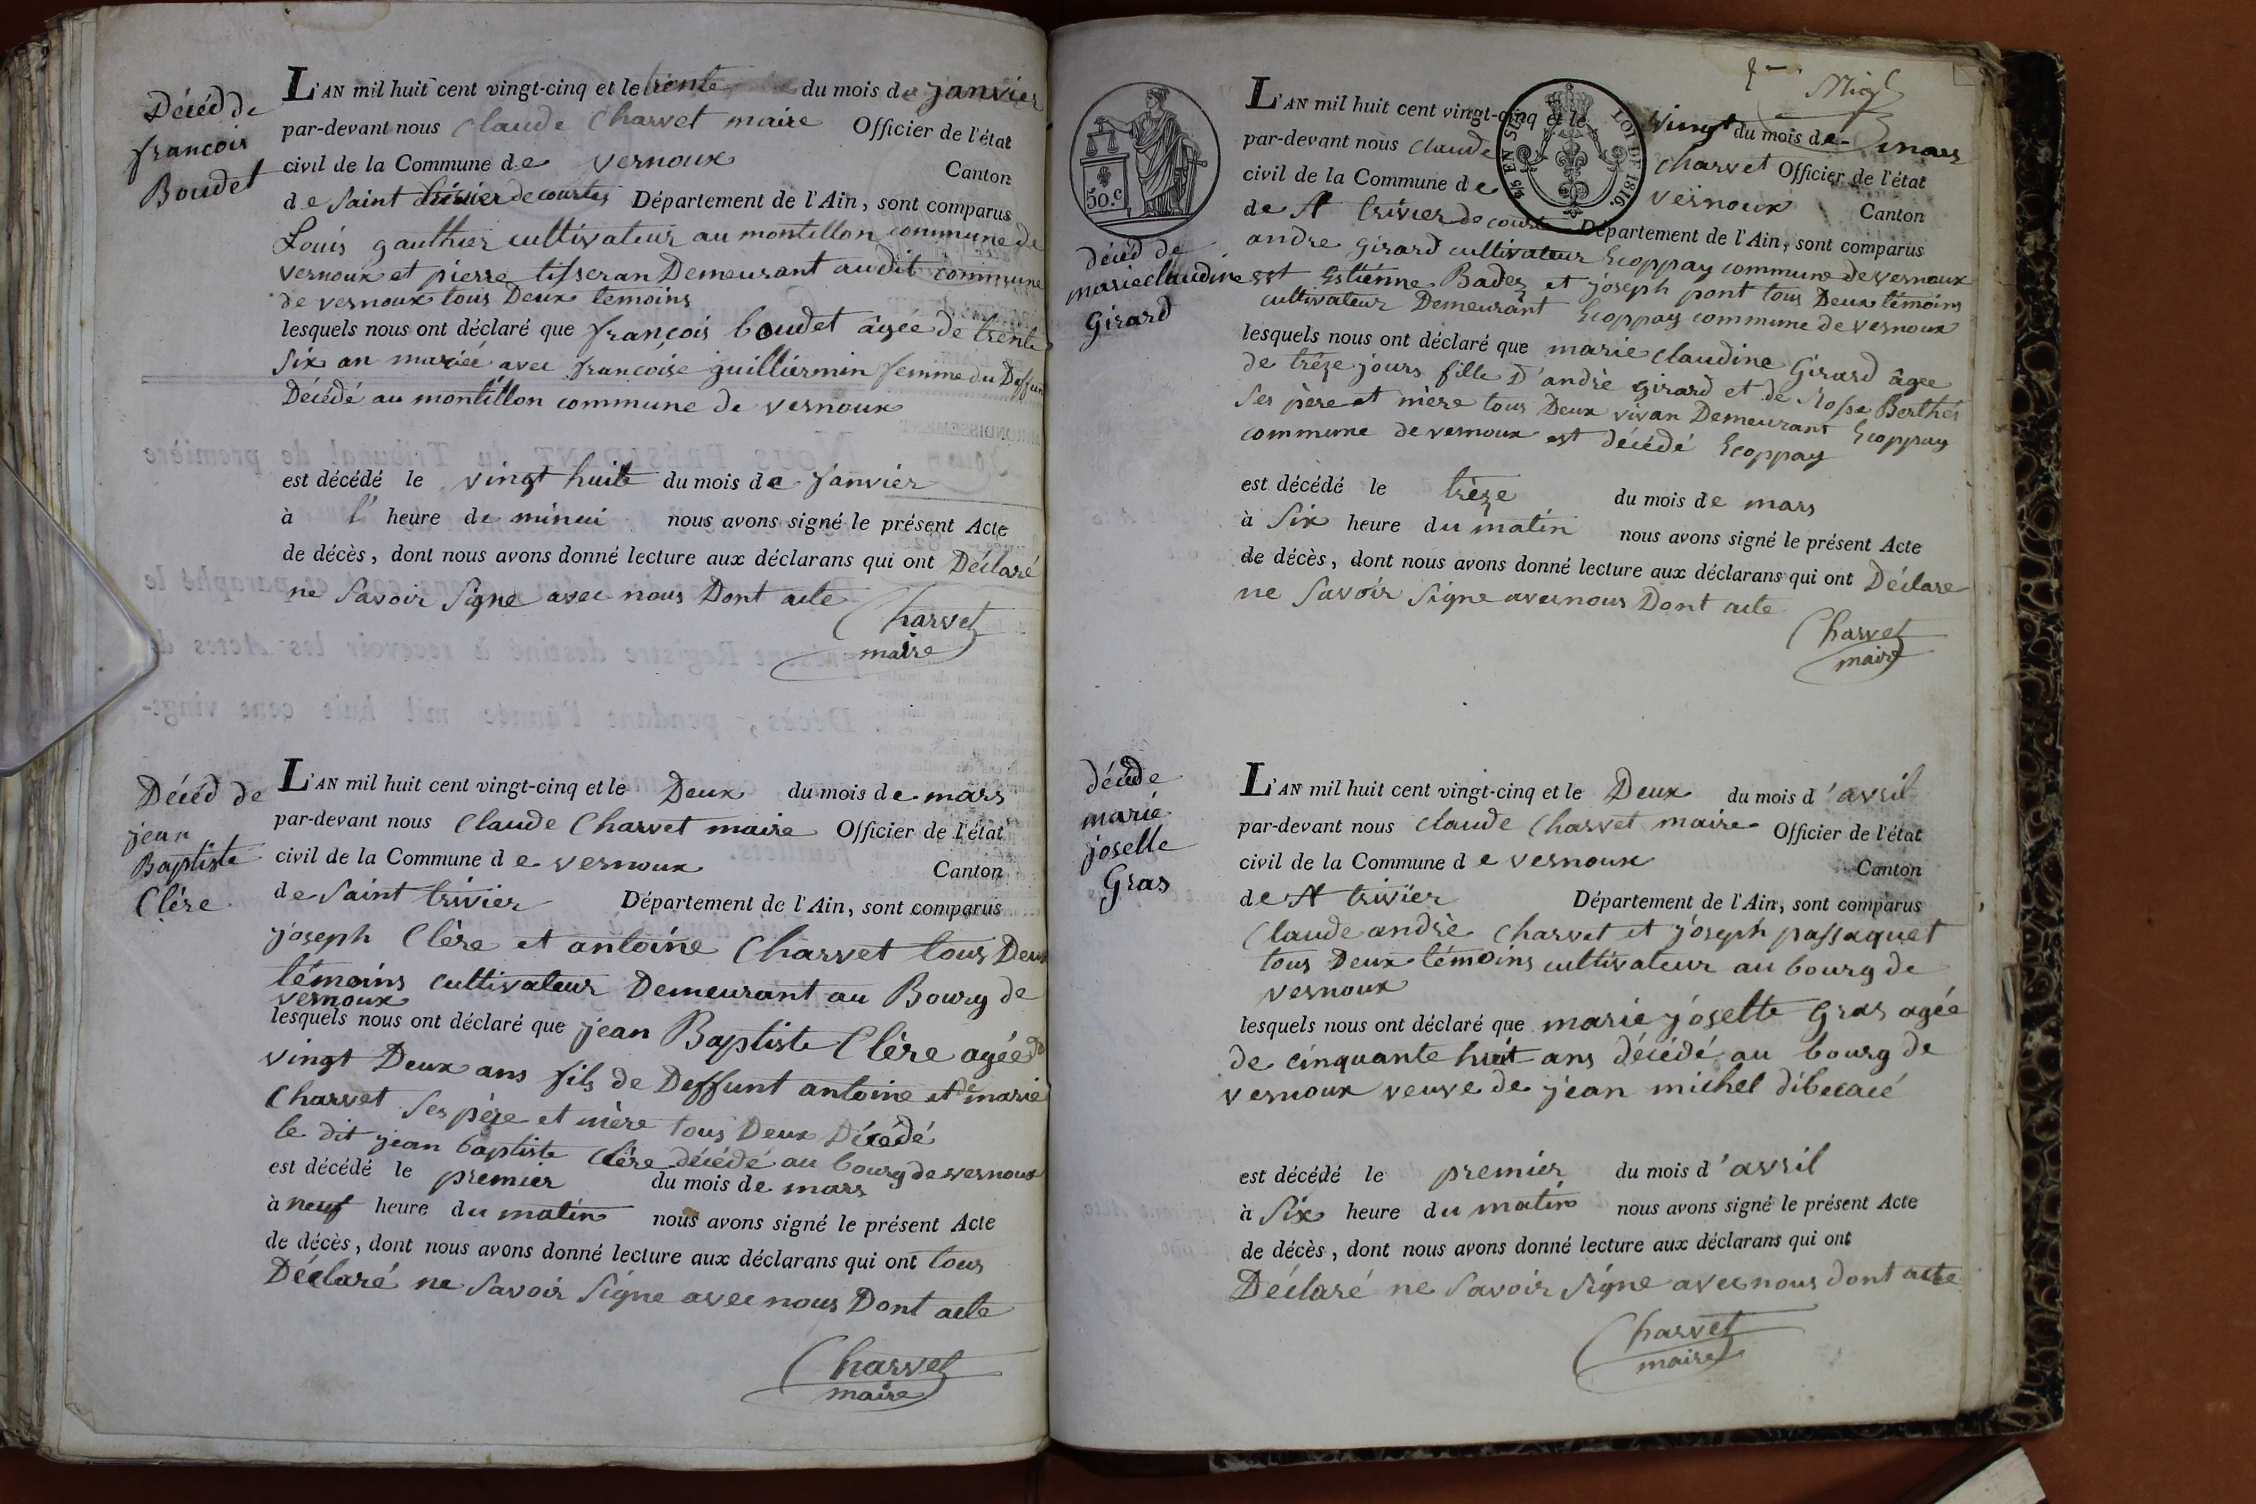 Décéd de
françois
Boudet
L'AN mil huit cent vingt-cinq et le trente du mois de janvier
par-devant nous Claude Charvet maire Officier de l'état
civil de la Commune de vernoux Canton
de Saint trivier de courtes Département de l'Ain, sont comparus
Louis gauthier cultivateur au montillon commune de
vernoux et pierre tisseran Demeurant audit commune
de vernoux tous Deux temoins
lesquels nous ont déclaré que françois boudet âgée de trente
Six an mariée avec françoise guilliermin femme du Deffun
Décédé au montillon commune de vernoux
est décédé le vingt huit du mois de janvier
à l' heure de minui nous avons signé le présent Acte
de décès, dont nous avons donné lecture aux déclarans qui ont Déclaré
ne Savoir Signe avec nous Dont acte
Charvet
maire
Décéd de
jean
Baptiste
Clère
L'AN mil huit cent vingt-cinq et le Deux du mois de mars
par-devant nous Claude Charvet maire Officier de l'état
civil de la Commune de vernoux Canton
de Saint trivier Département de l'Ain, sont comparus
joseph Clère et antoine Charvet tous Deux
témoins cultivateur Demeurant au Bourg de
vernoux
lesquels nous ont déclaré que jean Baptiste Clère agée de
vingt Deux ans fils de Deffunt antoine et de marie
Charvet Ses père et mère tous Deux Décédé
le dit jean baptiste Clère décédé au bourg de vernoux
est décédé le premier du mois de mars
à neuf heure du matin nous avons signé le présent Acte
de décès, dont nous avons donné lecture aux déclarans qui ont tous
Déclaré ne Savoir Signe avec nous Dont acte
Charvet
maire
50.c
SUS
LOI DE 1816.
décéd de
marie claudine
Girard
L'AN mil huit cent vingt-cinq et le vingt du mois de mars
par-devant nous Claude Charvet Officier de l'état
civil de la Commune de vernoux Canton
de St trivier de courte Département de l'Ain, sont comparus
andre girard cultivateur Ecoppay commune de vernoux
est Estienne Badez et joseph pont tous Deux témoins
cultivateur Demeurant Ecoppay commune de vernoux
lesquels nous ont déclaré que marie claudine Girard âgee
de trèze jours fille D'andrè girard et de Rosse Berthet
Ses père et mère tous Deux vivan Demeurant Ecoppay
commune de vernoux est décédé Ecoppay
est décédé le trèze du mois de mars
à Six heure du matin nous avons signé le présent Acte
de décès, dont nous avons donné lecture aux déclarans qui ont Déclare
ne Savoir Signe avec nous Dont acte
Charvet
maire
décéde
marie
joselle
Gras
L'AN mil huit cent vingt-cinq et le Deux du mois d'avril
par-devant nous claude Charvet maire Officier de l'état
civil de la Commune de vernoux Canton
de St trivier Département de l'Ain, sont comparus
Claude andrè Charvet et jóseph passaquet
tous Deux témoins cultivateur au bourg de
vernoux
lesquels nous ont déclaré que marie jóselte Gras agée
de cinquante huit ans décédé au bourg de
vernoux veuve de jean michel
est décédé le premier du mois d'avril
à Six heure du matin nous avons signé le présent Acte
de décès, dont nous avons donné lecture aux déclarans qui ont
Déclaré ne Savoir Signe avec nous dont acte
Charvet
maire